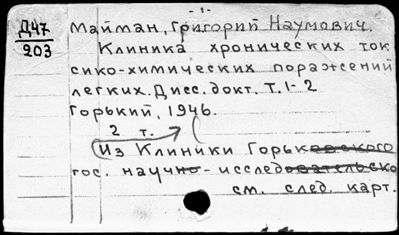 - 1 -
Д47
203
Майман, Григорий Наумович.
Клиника хронических ток
сико-химических поражений
легких. Дисс. докт. Т. 1-2
Горький, 1946.
2 т.
(Из Клиники Горьковского
гос. научно-исследовательско
см. след. карт.